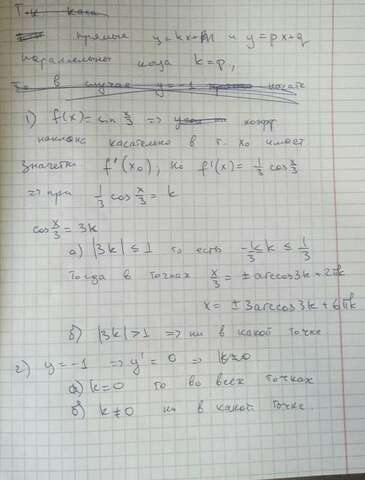 прямые y=kx+m и y=px+q
параллельны когда k=p,
в случае y=-1
1) f(x)=sin x/3 => коэфф
наклона касательно в т. x₀ имеет
значение f'(x₀), но f'(x)= 1/3 cos x/3
=> при 1/3 cos x/3 = k
cos x/3 = 3k
а) |3k| ≤ 1 то есть -1/3 ≤ k ≤ 1/3
тогда в точках x/3 = ± arccos3k + 2πk
x = ± 3arccos3k + 6πk
б) |3k|>1 => ни в какой точке.
2) y=-1 => y' = 0 =>
а) k=0 то во всех точках
б) k≠0 ни в какой точке.